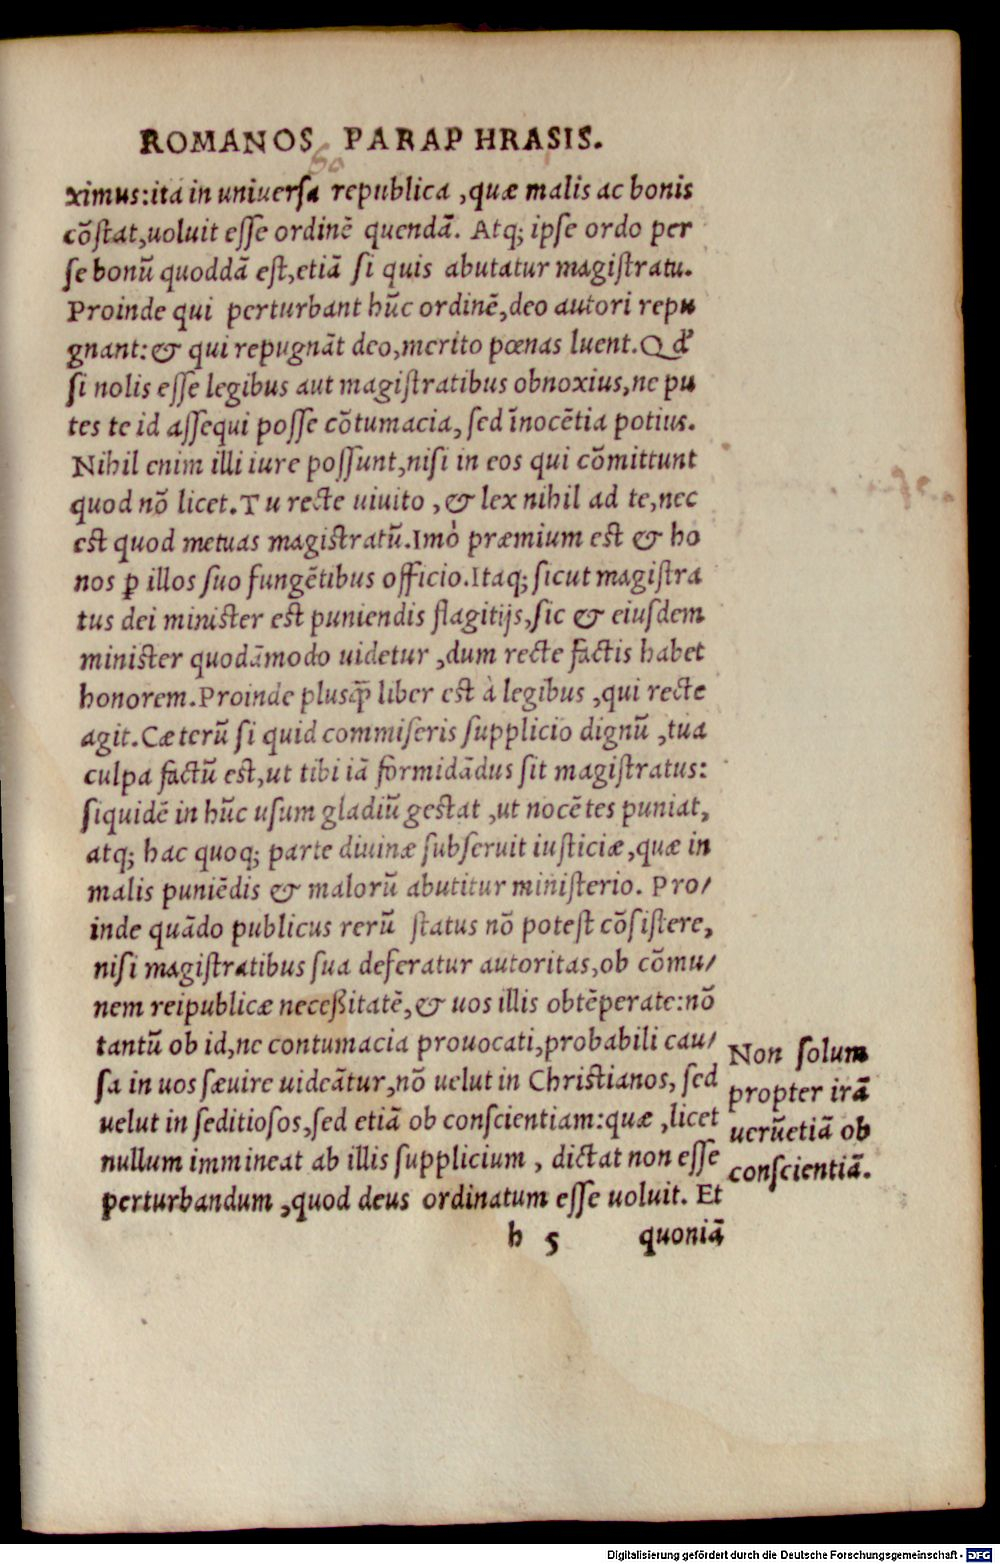 ROMANOS PARAPHRASIS.
60
ximus:ita in uniuerſa republica, quæ malis ac bonis
cōſtat,uoluit eſſe ordinē quendā. Atq; ipſe ordo per
ſe bonū quoddā eſt,etiā ſi quis abutatur magiſtratu.
Proinde qui perturbant hūc ordinē,deo autori repu
gnant:& qui repugnāt deo,merito pœnas luent.Qđ
ſi nolis eſſe legibus aut magiſtratibus obnoxius,ne pu
tes te id aſſequi poſſe cōtumacia, ſed īnocētia potius.
Nihil enim illi iure poſſunt,niſi in eos qui cōmittunt
quod nō licet.Tu recte uiuito, & lex nihil ad te,nec
est quod metuas magiſtratū.Imò præmium est & ho
nos ꝑ illos ſuo fungētibus officio.Itaq; ſicut magiſtra
tus dei miniſter est puniendis flagitijs,ſic & eiuſdem
miniſter quodāmodo uidetur, dum recte factis habet
honorem.Proinde plusꝙ̄ liber est à legibus, qui recte
agit.Cæterū ſi quid commiſeris ſupplicio dignū, tua
culpa factū est,ut tibi iā formidādus ſit magiſtratus:
ſiquidē in hūc uſum gladiū gestat, ut nocētes puniat,
atq; hac quoq; parte diuinæ ſubſeruit iusticiæ,quæ in
malis puniēdis & malorū abutitur miniſterio. Pro/
inde quādo publicus rerū ſtatus nō poteſt cōſiſtere,
niſi magiſtratibus ſua deferatur autoritas,ob cōmu/
nem reipublicæ neceßitatē,& uos illis obtēperate:nō
tantū ob id,ne contumacia prouocati,probabili cau/
ſa in uos ſæuire uideātur,nō uelut in Christianos, ſed
uelut in ſeditioſos,ſed etiā ob conſcientiam:quæ, licet
nullum immineat ab illis ſupplicium, dictat non eſſe
perturbandum, quod deus ordinatum eſſe uoluit. Et
h 5 quoniā
Non ſolum
propter irā
uerūetiā ob
conſcientiā.
Digitalisierung gefördert durch die Deutsche Forschungsgemeinschaft - DFG